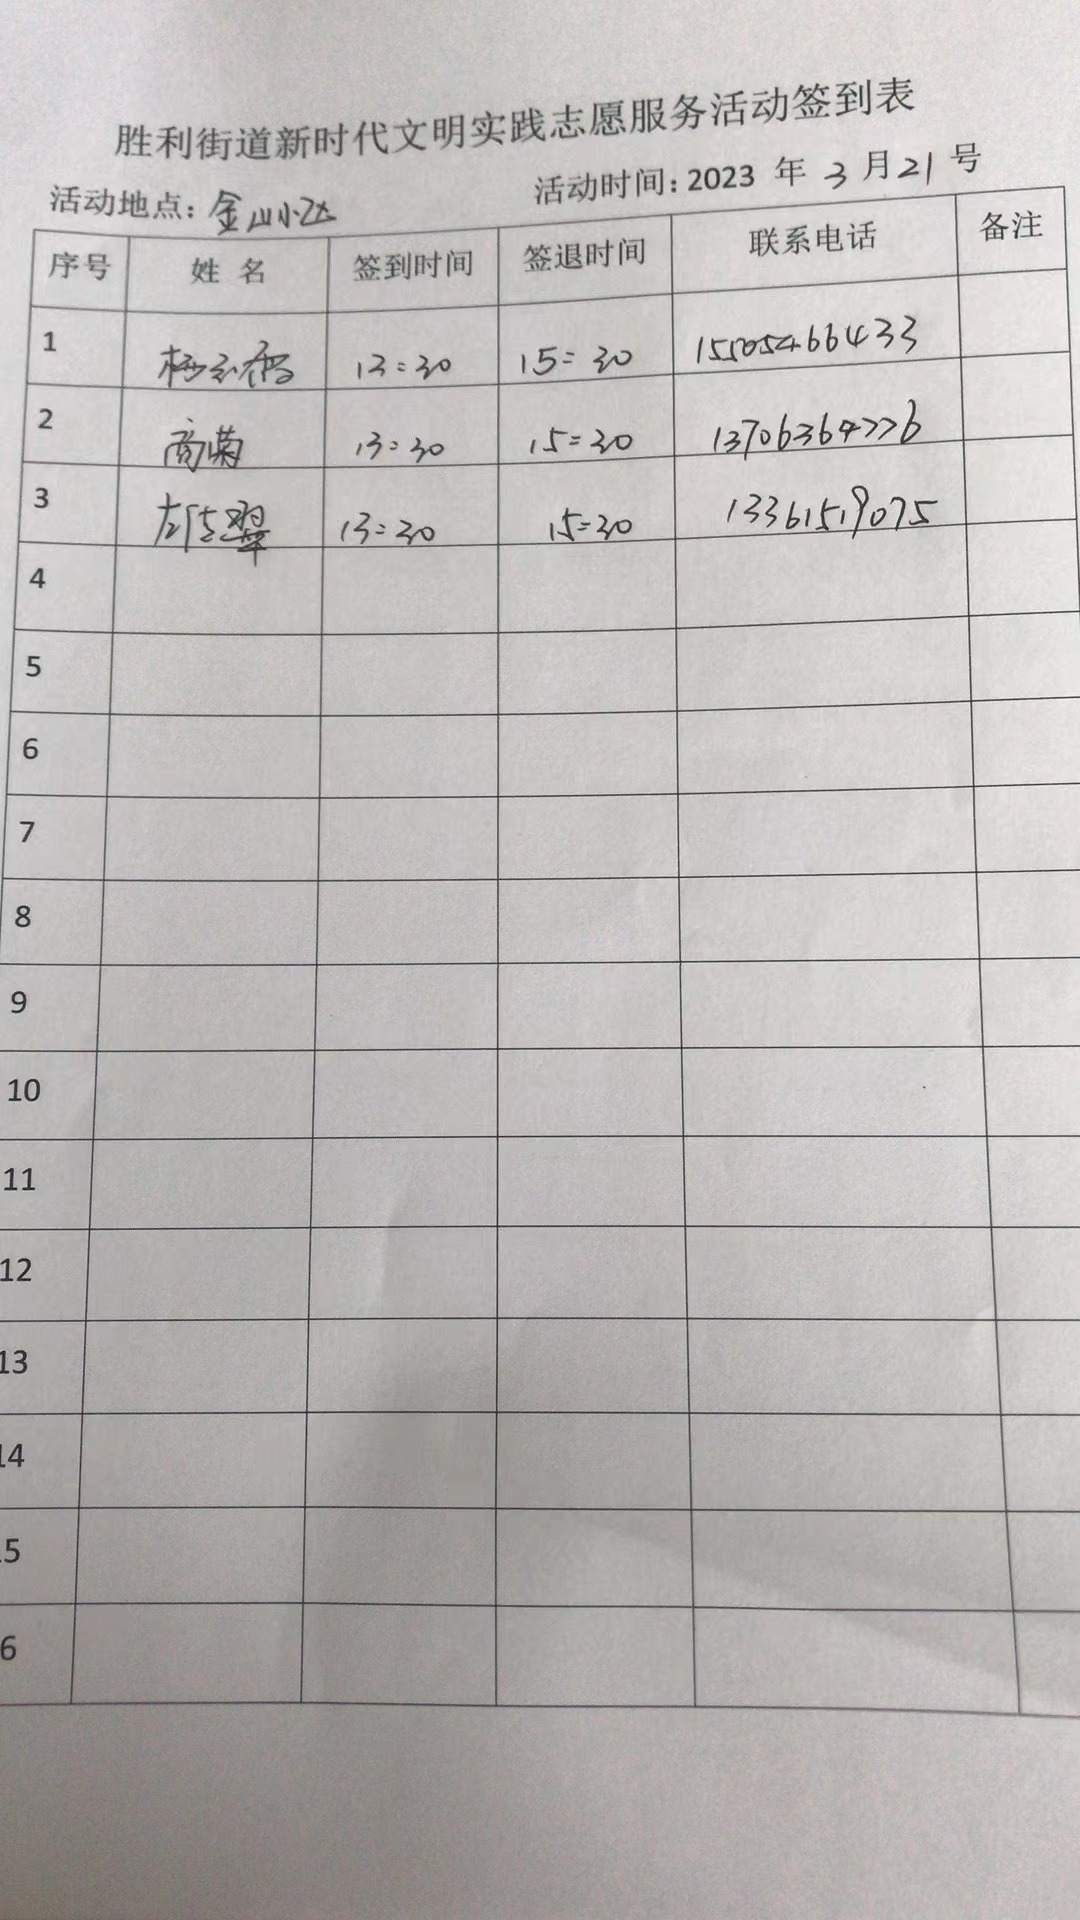 胜利街道新时代文明实践志愿服务活动签到表
活动地点：金山小区 活动时间：2023 年 3 月 21 号
序号 姓 名 签到时间 签退时间 联系电话 备注
1 13:30 15:30 15505466433
2 商菊 13:30 15:30 13706364776
3 13:30 15:30 13361519075
4
5
6
7
8
9
10
11
12
13
14
15
6